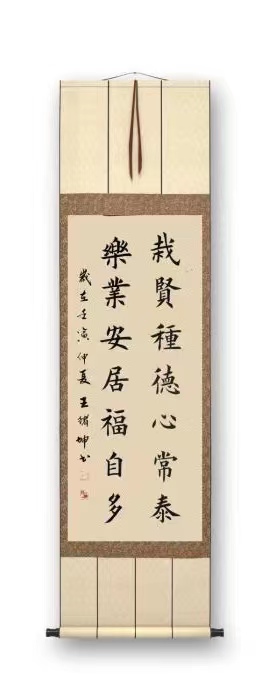 栽賢種德心常泰
樂業安居福自多
歲在壬寅仲夏王緒坤书